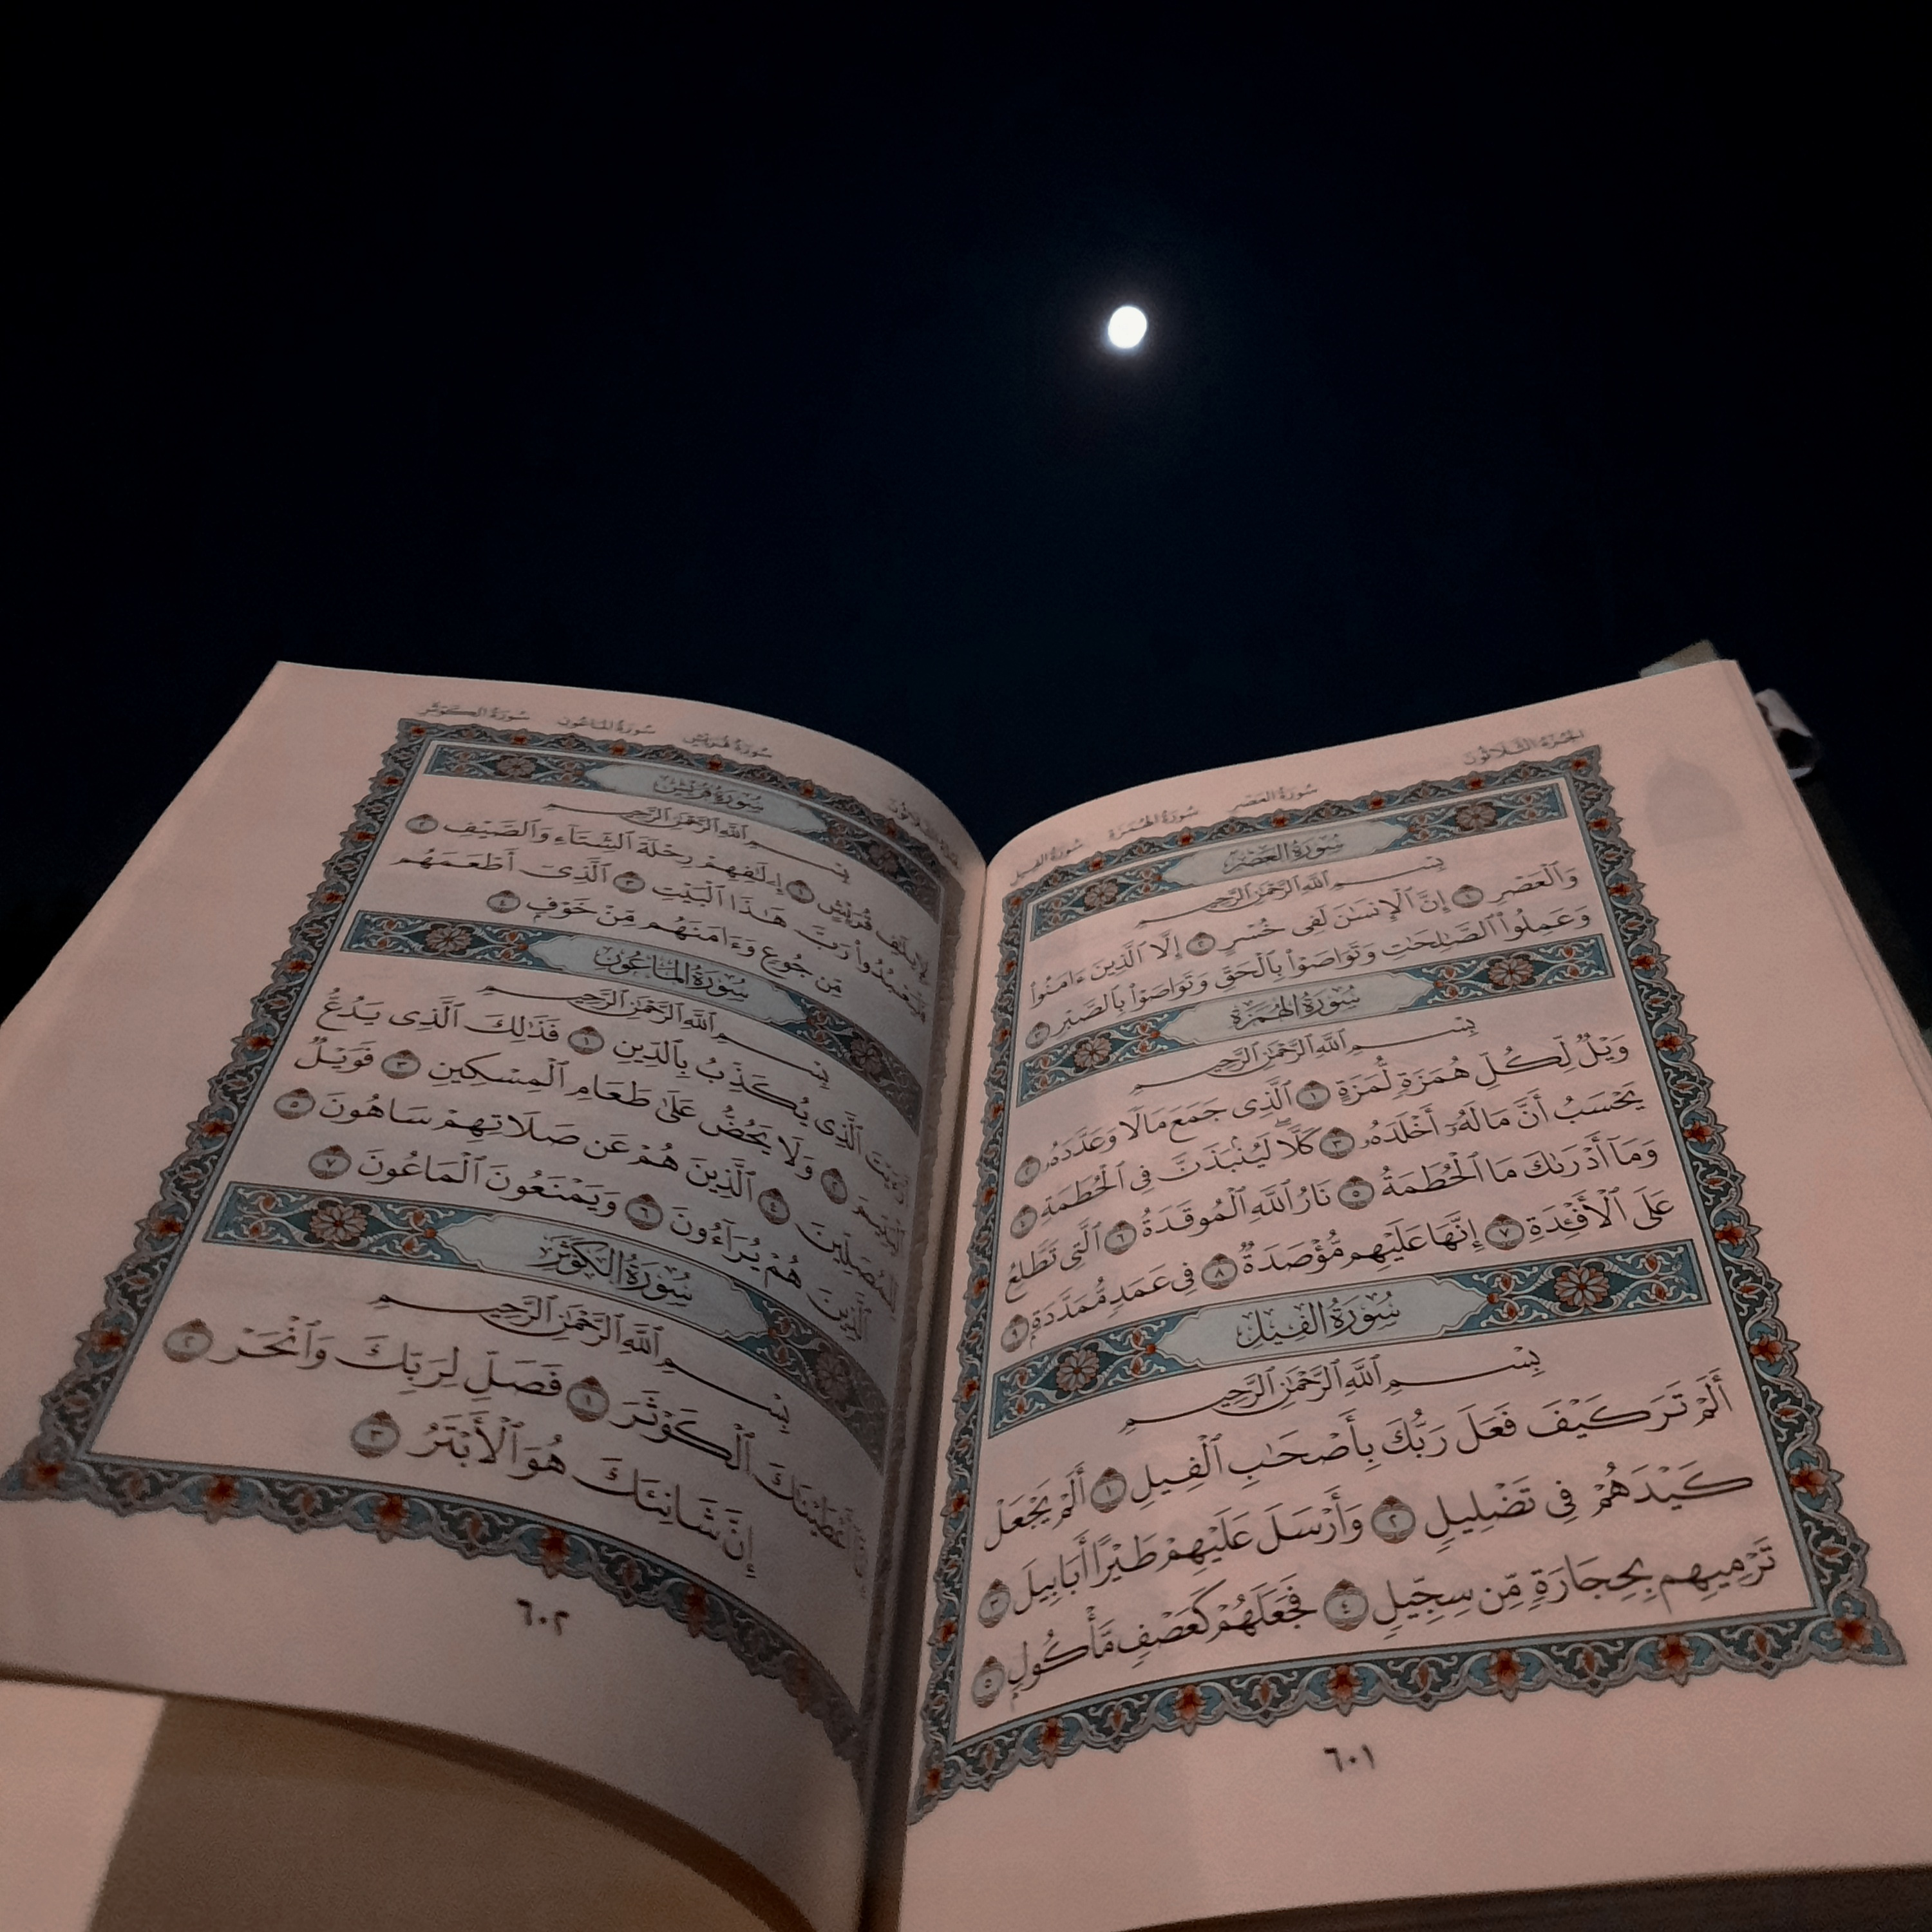 الجزء الثلاثون
سورة العصر سورة الهمزة سورة الفيل
سُورَةُ العَصْرِ
بِسْمِ ٱللَّهِ ٱلرَّحْمَٰنِ ٱلرَّحِيمِ
وَٱلْعَصْرِ ١ إِنَّ ٱلْإِنسَٰنَ لَفِى خُسْرٍ ٢ إِلَّا ٱلَّذِينَ ءَامَنُوا۟
وَعَمِلُوا۟ ٱلصَّٰلِحَٰتِ وَتَوَاصَوْا۟ بِٱلْحَقِّ وَتَوَاصَوْا۟ بِٱلصَّبْرِ ٣
سُورَةُ الهُمَزَةِ
بِسْمِ ٱللَّهِ ٱلرَّحْمَٰنِ ٱلرَّحِيمِ
وَيْلٌ لِّكُلِّ هُمَزَةٍ لُّمَزَةٍ ١ ٱلَّذِى جَمَعَ مَالًا وَعَدَّدَهُۥ ٢
يَحْسَبُ أَنَّ مَالَهُۥٓ أَخْلَدَهُۥ ٣ كَلَّا ۖ لَيُنۢبَذَنَّ فِى ٱلْحُطَمَةِ ٤
وَمَآ أَدْرَىٰكَ مَا ٱلْحُطَمَةُ ٥ نَارُ ٱللَّهِ ٱلْمُوقَدَةُ ٦ ٱلَّتِى تَطَّلِعُ
عَلَى ٱلْأَفْـِٔدَةِ ٧ إِنَّهَا عَلَيْهِم مُّؤْصَدَةٌ ٨ فِى عَمَدٍ مُّمَدَّدَةٍۭ ٩
سُورَةُ الفِيلِ
بِسْمِ ٱللَّهِ ٱلرَّحْمَٰنِ ٱلرَّحِيمِ
أَلَمْ تَرَ كَيْفَ فَعَلَ رَبُّكَ بِأَصْحَٰبِ ٱلْفِيلِ ١ أَلَمْ يَجْعَلْ
كَيْدَهُمْ فِى تَضْلِيلٍ ٢ وَأَرْسَلَ عَلَيْهِمْ طَيْرًا أَبَابِيلَ ٣
تَرْمِيهِم بِحِجَارَةٍ مِّن سِجِّيلٍ ٤ فَجَعَلَهُمْ كَعَصْفٍ مَّأْكُولٍۭ ٥
٦٠١
سورة قريش سورة الماعون سورة الكوثر
سُورَةُ قُرَيْشٍ
بِسْمِ ٱللَّهِ ٱلرَّحْمَٰنِ ٱلرَّحِيمِ
قُرَيْشٍ ١ إِۦلَٰفِهِمْ رِحْلَةَ ٱلشِّتَآءِ وَٱلصَّيْفِ ٢
فَلْيَعْبُدُوا۟ رَبَّ هَٰذَا ٱلْبَيْتِ ٣ ٱلَّذِىٓ أَطْعَمَهُم
مِّن جُوعٍ وَءَامَنَهُم مِّنْ خَوْفٍۭ ٤
سُورَةُ المَاعُونِ
بِسْمِ ٱللَّهِ ٱلرَّحْمَٰنِ ٱلرَّحِيمِ
ٱلَّذِى يُكَذِّبُ بِٱلدِّينِ ١ فَذَٰلِكَ ٱلَّذِى يَدُعُّ
٢ وَلَا يَحُضُّ عَلَىٰ طَعَامِ ٱلْمِسْكِينِ ٣ فَوَيْلٌ
لِّلْمُصَلِّينَ ٤ ٱلَّذِينَ هُمْ عَن صَلَاتِهِمْ سَاهُونَ ٥
ٱلَّذِينَ هُمْ يُرَآءُونَ ٦ وَيَمْنَعُونَ ٱلْمَاعُونَ ٧
سُورَةُ الكَوْثَرِ
بِسْمِ ٱللَّهِ ٱلرَّحْمَٰنِ ٱلرَّحِيمِ
أَعْطَيْنَٰكَ ٱلْكَوْثَرَ ١ فَصَلِّ لِرَبِّكَ وَٱنْحَرْ ٢
إِنَّ شَانِئَكَ هُوَ ٱلْأَبْتَرُ ٣
٦٠٢